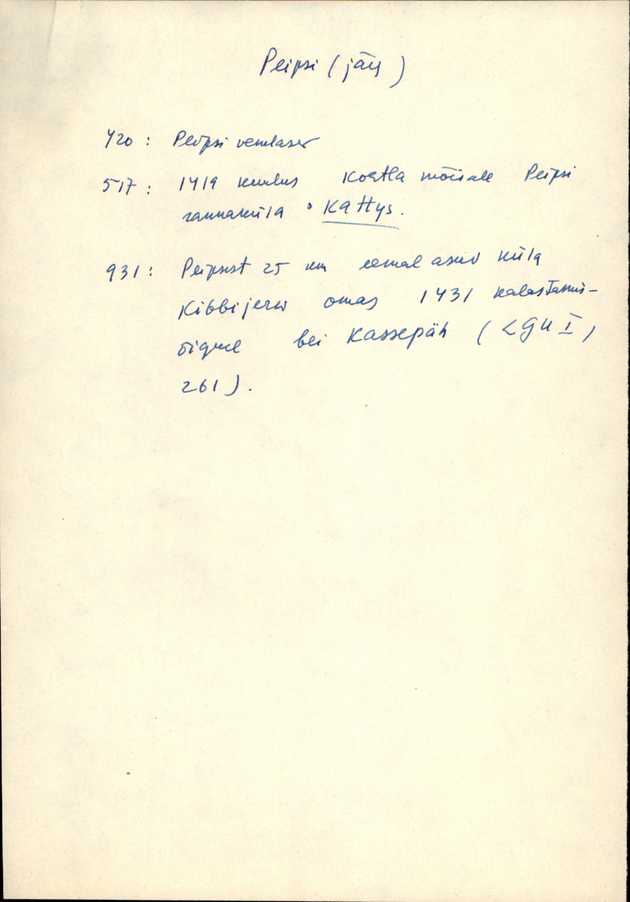 Peipsi (järv)
420: Peipsi venelased
517: 1419 kuulus Kostla mõisale Peipsi
rannaküla Kattys.
931: Peipsist 25 km eemal asuv küla
Kibbijerw omas 1431 kalastamis-
õiguse bei Kassepäh (LGU I,
261).